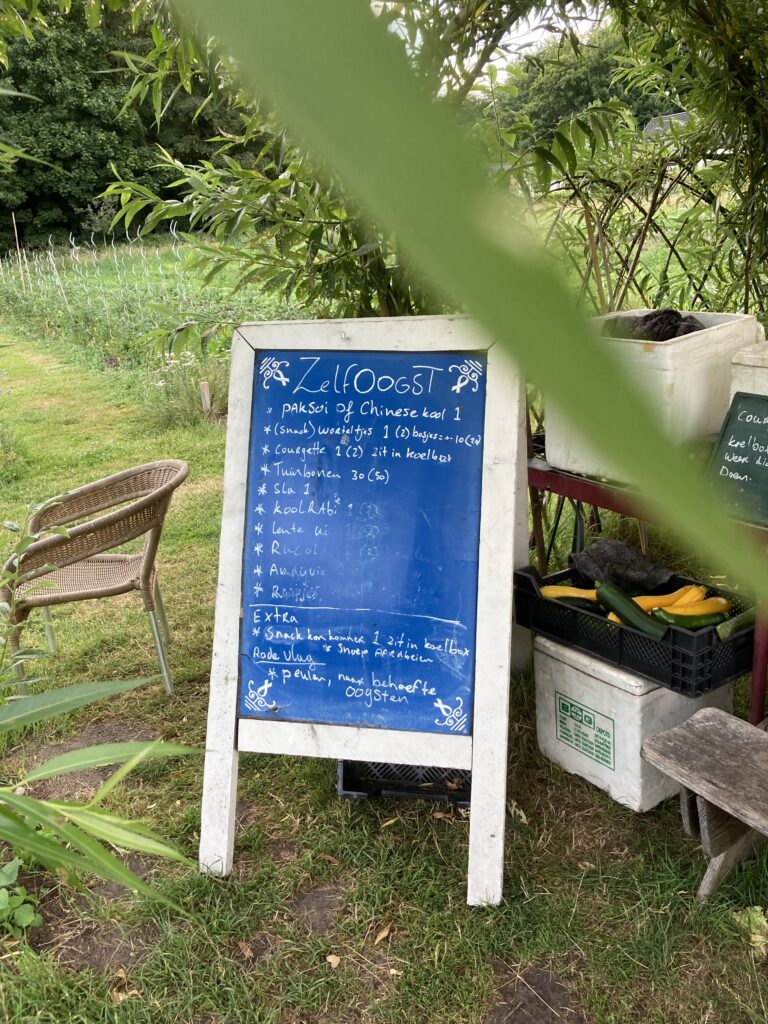 ZelfOOGST
* PAKSOI of Chinese kool 1
* (snack) worteltjes 1 (2) bosjes
* Courgette 1 (2) zit in koelbox
* Tuinbonen 30 (50)
* Sla 1
* koolRAbi 1 (2)
* Lente ui
* Rucola (2)
* Andijvie
* Raapjes
Extra
* Snack komkommer 1 zit in koelbox
Rode Vlag * Snoep Aardbeien
* peulen, naar behoefte
oogsten
koelbox
Doen.